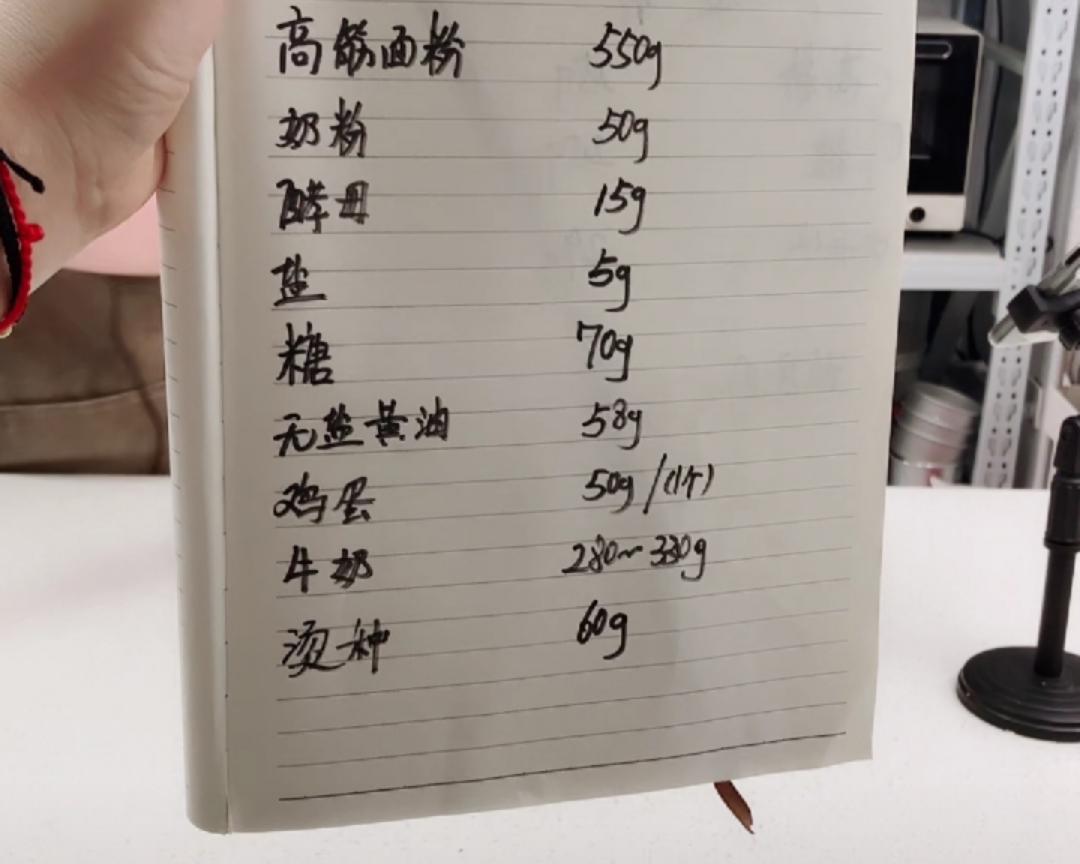 高筋面粉 550g
奶粉 50g
酵母 15g
盐 5g
糖 70g
无盐黄油 58g
鸡蛋 50g/(1个)
牛奶 280~330g
烫种 60g